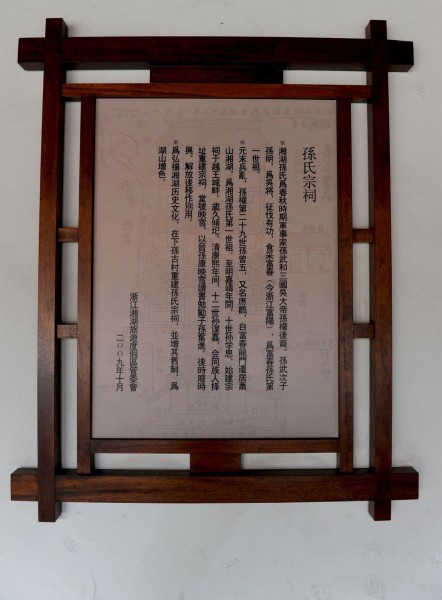 孫氏宗祠
※湘湖孫氏爲春秋時期軍事家孫武和三國吳大帝孫權後裔。孫武次子
孫明，爲吳將，征伐有功，食采富春（今浙江富陽），爲富春孫氏第
一世祖。
※元末兵亂，孫權第二十九世孫曾五，又名應鶴，自富春龍門遷居蕭
山湘湖，爲湘湖孫氏第一世祖。至明嘉靖年間，十世孫学思，始建宗
祠于越王城畔，歲久傾圮。清康熙年间，十二世孫谋嘉，会同族人择
址重建宗祠，堂號映雪，以晉孫康映雪讀書勉勵子孫奮進。後時廢時
興，解放後移作別用。
※爲弘揚湘湖历史文化，在下孫古村重建孫氏宗祠，並增其舊制，爲
湖山增色。
浙江湘湖旅遊度假區管委會
二〇〇九年十月